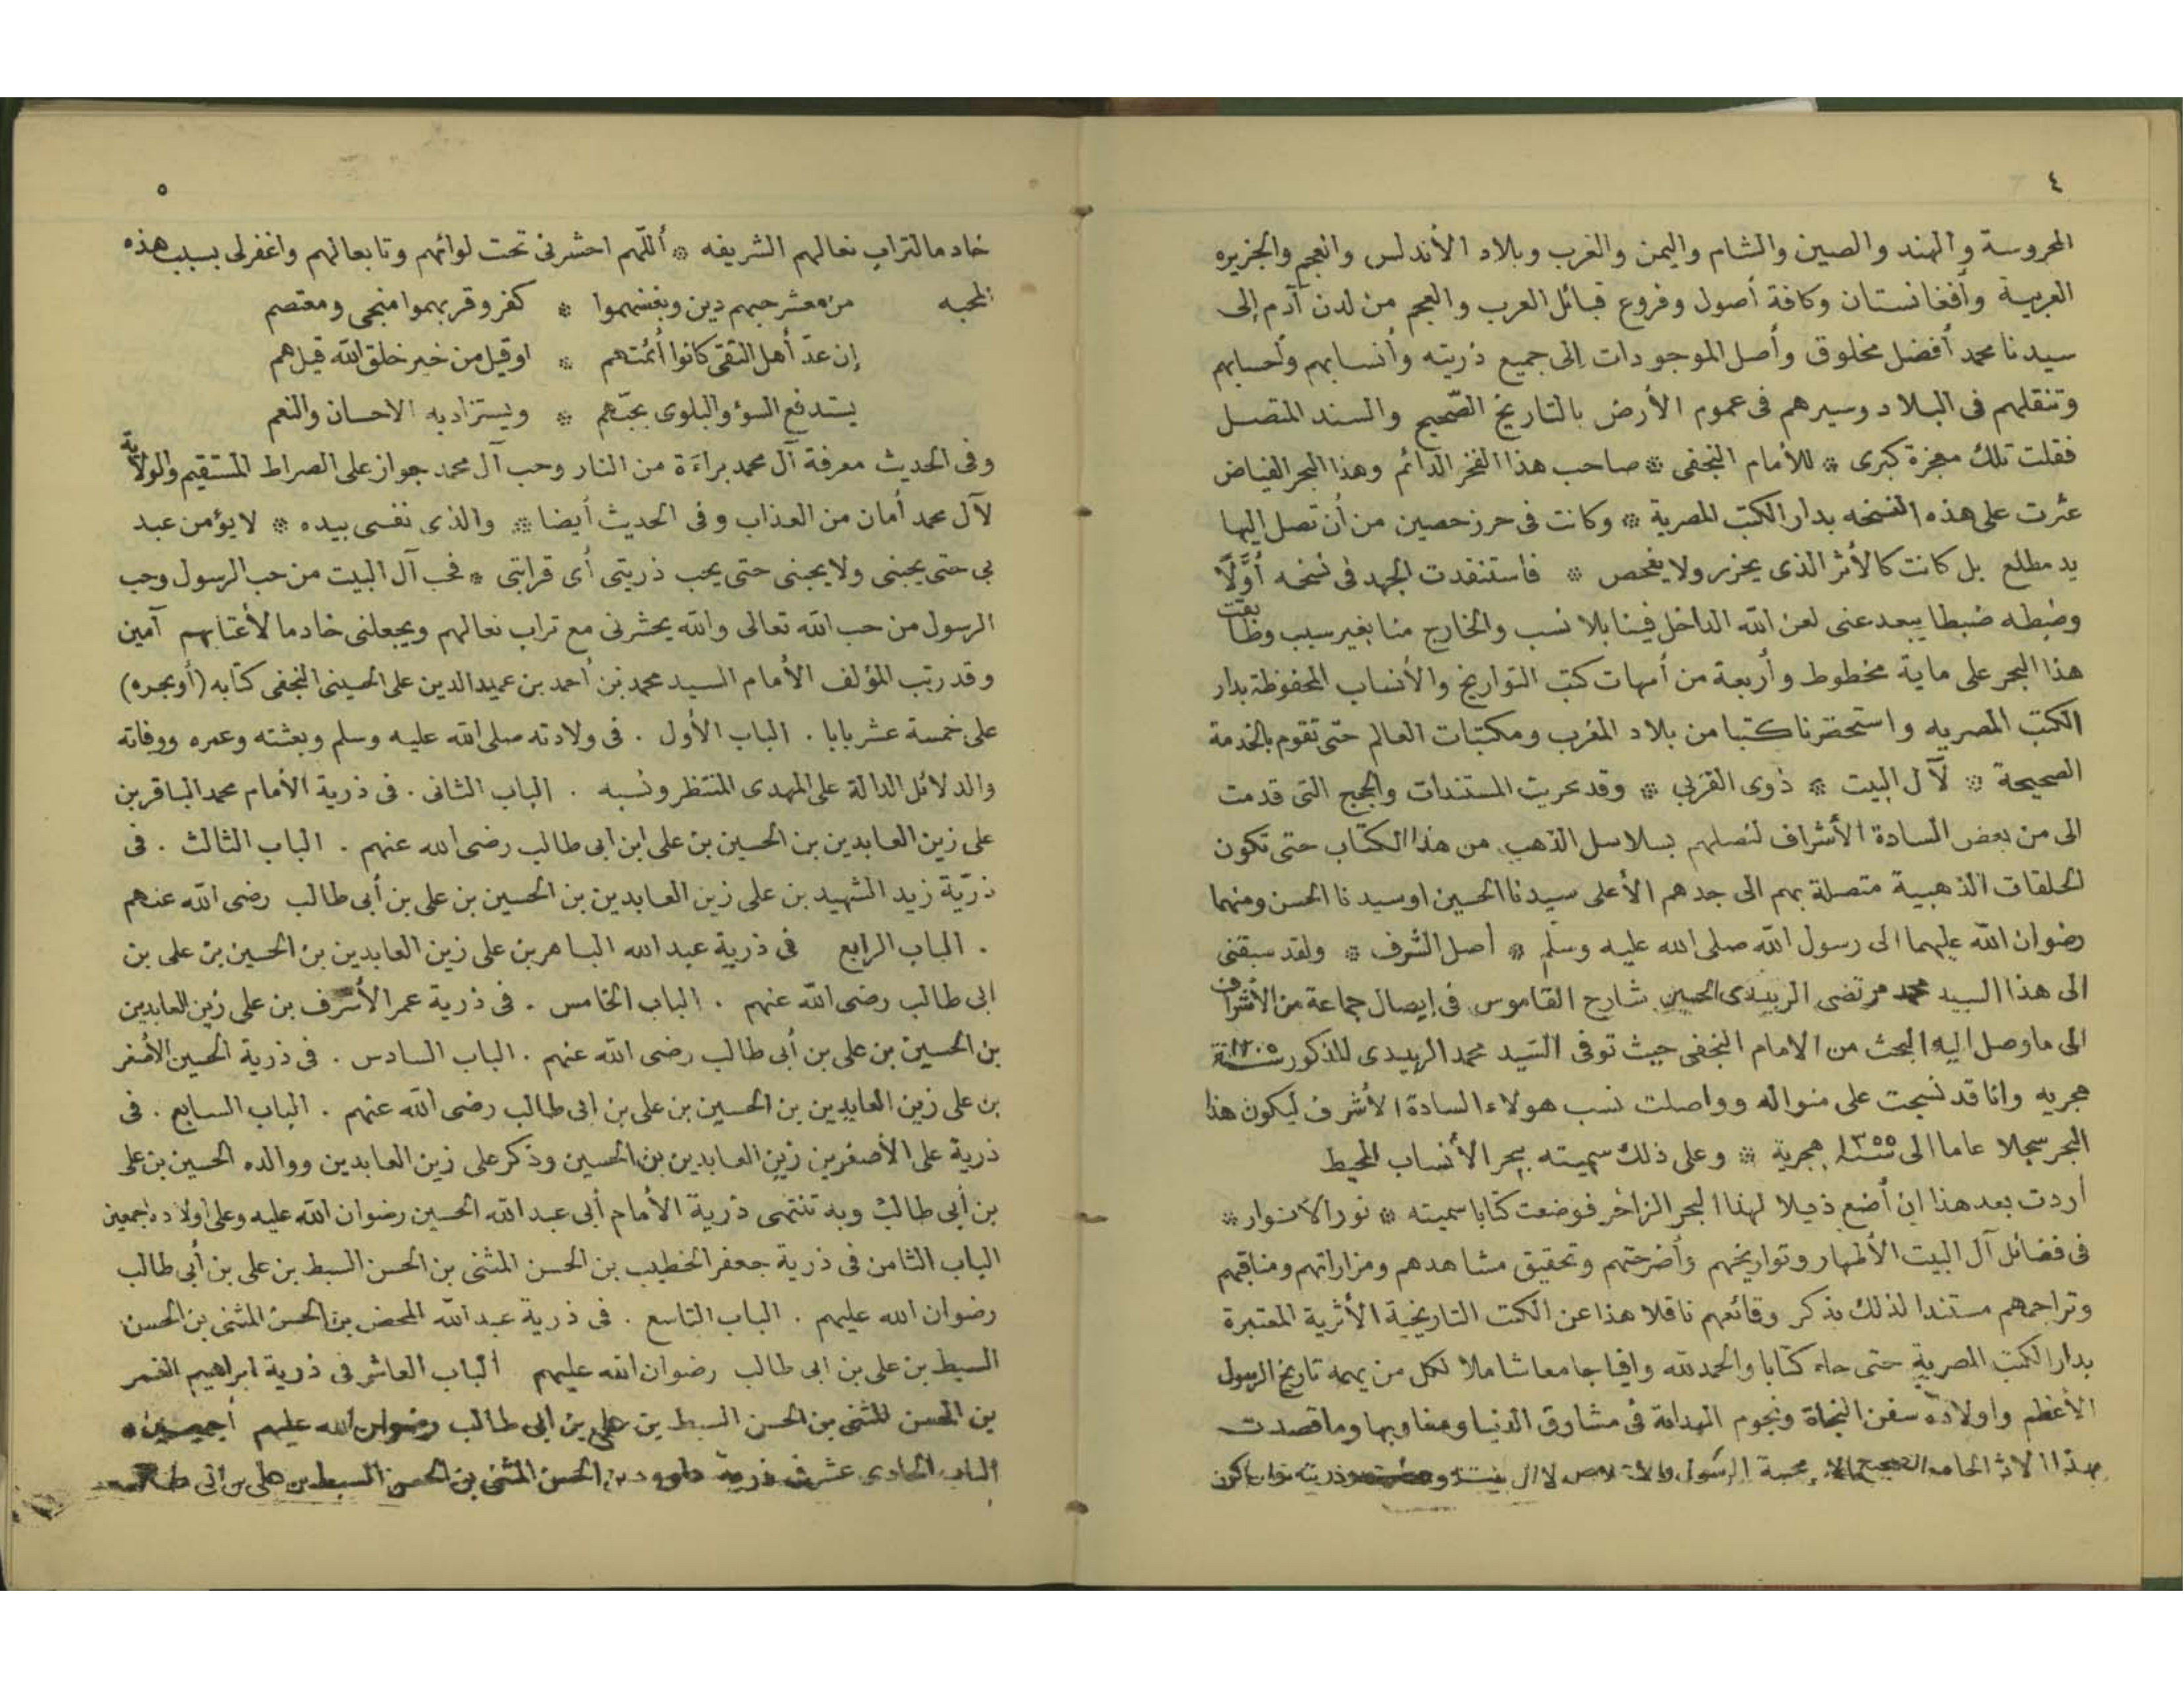 ٤
المحروسة والهند والصين والشام واليمن والغرب وبلاد الأندلس والعجم والجزيره
العربية وأفغانستان وكافة أصول وفروع قبائل العرب والعجم من لدن آدم إلى
سيدنا محمد أفضل مخلوق وأصل الموجودات إلى جميع ذريته وأنسابهم وأحسابهم
وتنقلهم فى البلاد وسيرهم فى عموم الأرض بالتاريخ الصّحيح والسند المتصل
فقلت تلك معجزة كبرى * للأمام النجفى * صاحب هذا الفخر الدآئم وهذا البحر الفياض
عثرت على هذه النسخه بدار الكتب المصرية * وكانت فى حرز حصين من أن تصل إليها
يد مطلع بل كانت كالأثر الذى يحزر ولا يفحص * فاستنفدت الجهد فى نسخه أوَّلًا
وضبطه ضبطا يبعد عنى لعن الله الداخل فينا بلا نسب والخارج منا بغير سبب وطابقت
هذا البحر على ماية مخطوط وأربعة من أمهات كتب التواريخ والأنساب المحفوظة بدار
الكتب المصريه واستحضرنا كتبا من بلاد المغرب ومكتبات العالم حتى تقوم بالخدمة
الصحيحة * لآل البيت * ذوى القربي * وقد تحريت المستندات والحجج التى قدمت
الى من بعض السادة الأشراف لنصلهم بسلاسل الذهب من هذا الكتاب حتى تكون
الحلقات الذهبية متصلة بهم الى جدهم الأعلى سيدنا الحسين اوسيدنا الحسن ومنهما
رضوان الله عليهما الى رسول الله صلى الله عليه وسلم * اصل الشرف * ولقد سبقنى
الى هذا السيد محمد مرتضى الزبيدى الحسينى شارح القاموس فى إيصال جماعة من الأشراف
الى ما وصل اليه البحث من الامام النجفى حيث توفى السّيد محمد الزبيدى المذكور سنة ١٢٠٥
هجريه وانا قد نسجت على منواله وواصلت نسب هولاء السادة الأشرف ليكون هذا
البحر سجلا عاما الى سنة ١٣٥٥ هجرية * وعلى ذلك سميته ببحر الأنساب المحيط
أردت بعد هذا ان أضع ذيلا لهذا البحر الزاخر فوضعت كتابا سميته * نور الأنوار *
فى فضائل آل البيت الأطهار وتواريخهم وأضرحتهم وتحقيق مشاهدهم ومزاراتهم ومناقبهم
وتراجمهم مستندا لذلك بذكر وقائعهم ناقلا هذا عن الكتب التاريخية الأثرية المعتبرة
بدار الكتب المصرية حتى جاء كتابا والحمد لله وافيا جامعا شاملا لكل من يهمه تاريخ الرسول
الأعظم واولاده سفن النجاة ونجوم الهداية فى مشارق الدنيا ومغاربها وما قصدت
بهذا محبة الرسول
٥
خادما لتراب نعالهم الشريفه * أللّهم احشرنى تحت لوائهم وتابعالهم واغفرلى بسبب هذه
المحبه من معشر حبهم دين وبغضهموا * كفر وقربهموا منجى ومعتصم
إن عدّ أهل التقى كانوا أئمتهم * اوقيل من خير خلق الله قيل هم
يستدفع السؤ والبلوى بحبّهم * ويستزاد به الاحسان والنعم
وفى الحديث معرفة آل محمد براءَة من النار وحب آل محمد جواز على الصراط المستقيم والولاية
لآل محمد أمان من العذاب وفى الحديث أيضا * والذى نفسى بيده * لا يؤمن عبد
بي حتى يحبنى ولا يحبنى حتى يحب ذريتى أى قرابتى * فحب آل البيت من حب الرسول وحب
الرسول من حب الله تعالى والله يحشرنى مع تراب نعالهم ويجعلنى خادما لأعتابهم آمين
وقد رتب المؤلف الأمام السيد محمد بن أحمد بن عميد الدين على الحسينى النجفى كتابه (أوبحره)
على خمسة عشر بابا . الباب الأول . فى ولادته صلى الله عليه وسلم وبعثته وعمره ووفاته
والدلائل الدالة على المهدى المنتظر ونسبه . الباب الثانى . فى ذرية الأمام محمد الباقر بن
على زين العابدين بن الحسين بن على ابن ابى طالب رضى الله عنهم . الباب الثالث . فى
ذرّية زيد الشهيد بن على زين العابدين بن الحسين بن على بن أبى طالب رضى الله عنهم
. الباب الرابع فى ذرية عبد الله الباهر بن على زين العابدين بن الحسين بن على بن
ابى طالب رضى الله عنهم . الباب الخامس . فى ذرية عمر الأشرف بن على زين العابدين
بن الحسين بن على بن أبى طالب رضى الله عنهم . الباب السادس . فى ذرية الحسين الأصغر
بن على زين العابدين بن الحسين بن على بن ابى طالب رضى الله عنهم . الباب السابع . فى
ذرية على الأصغر بن زين العابدين بن الحسين وذكر على زين العابدين ووالده الحسين بن على
بن أبى طالب وبه تنتهى ذرية الأمام أبى عبد الله الحسين رضوان الله عليه وعلى أولاده اجمعين
الباب الثامن فى ذرية جعفر الخطيب بن الحسن المثنى بن الحسن السبط بن على بن أبى طالب
رضوان الله عليهم . الباب التاسع . فى ذرية عبد الله المحض بن الحسن المثنى بن الحسن
السبط بن على بن ابى طالب رضوان الله عليهم الباب العاشر فى ذرية ابراهيم الغمر
بن الحسن المثنى بن الحسن السبط بن على بن ابى طالب رضوان الله عليهم أجمعين .
الباب الحادى عشر فى ذرية داود بن الحسن المثنى بن الحسن السبط بن على بن ابى طالب